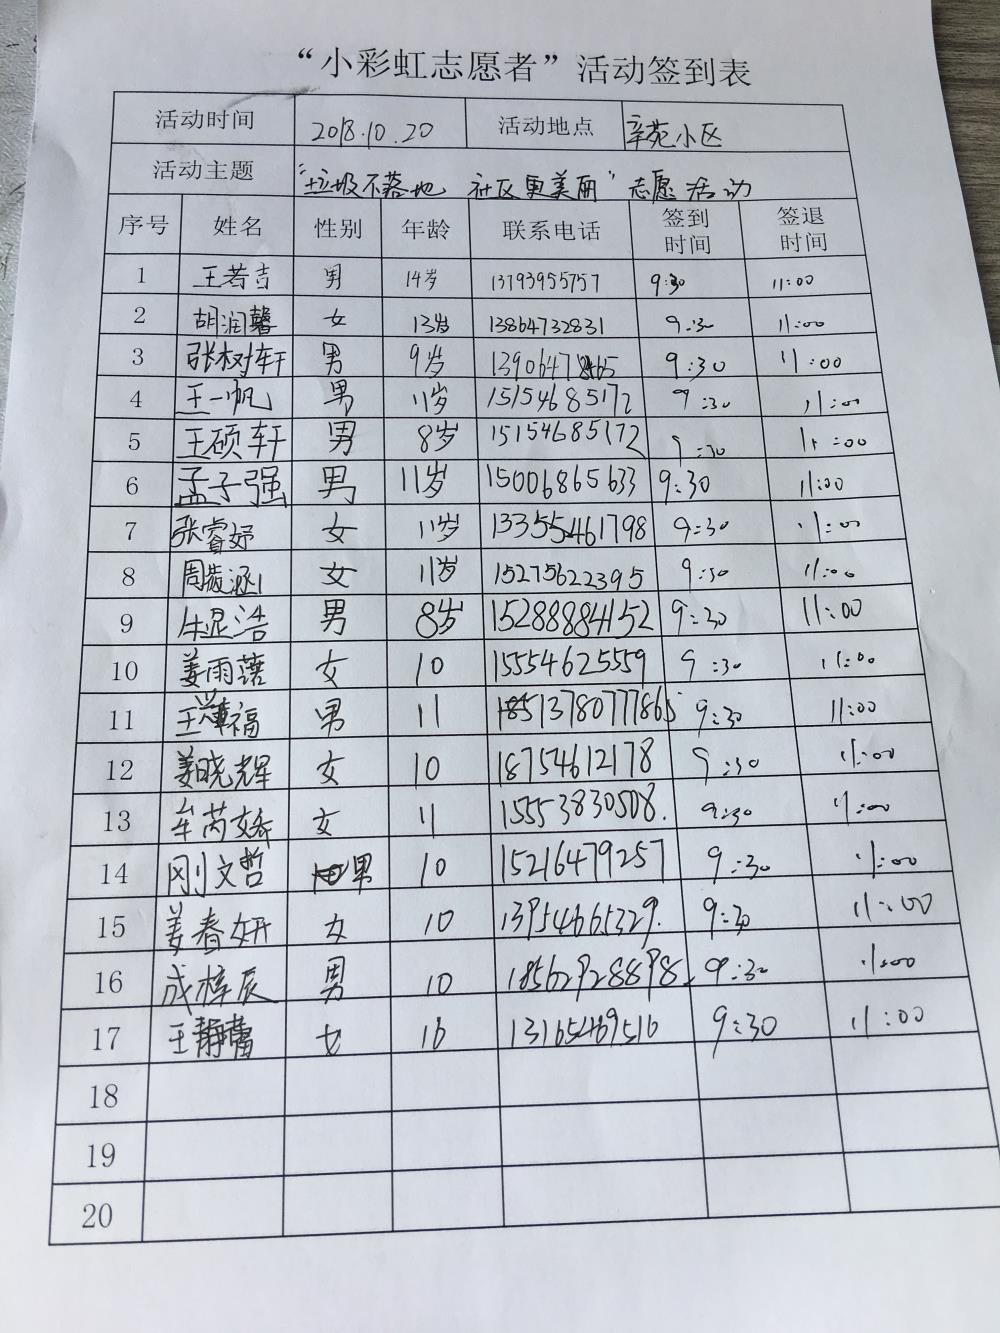 “小彩虹志愿者”活动签到表
活动时间 2018.10.20 活动地点 辛苑小区
活动主题 “垃圾不落地 社区更美丽”志愿活动
序号 姓名 性别 年龄 联系电话 签到时间 签退时间
1 王若吉 男 14岁 13793955757 9:30 11:00
2 胡润馨 女 13岁 13864732831 9:30 11:00
3 张树轩 男 9岁 9:30 11:00
4 王一帆 男 11岁 15154685172 9:30 11:00
5 王硕轩 男 8岁 15154685172 9:30 11:00
6 孟子强 男 11岁 15006865633 9:30 11:00
7 张睿妤 女 11岁 13355461798 9:30 11:00
8 女 11岁 15275622395 9:30 11:00
9 男 8岁 15288884152 9:30 11:00
10 女 10 15554625559 9:30 11:00
11 男 11 9:30 11:00
12 姜晓辉 女 10 18754612178 9:30 11:00
13 牟芮娇 女 11 15553830508. 9:30 11:00
14 刚文哲 男 10 15216479257 9:30 11:00
15 姜春妍 女 10 13954665329. 9:30 11:00
16 成梓辰 男 10 18562928898 9:30 11:00
17 女 16 13165469516 9:30 11:00
18
19
20